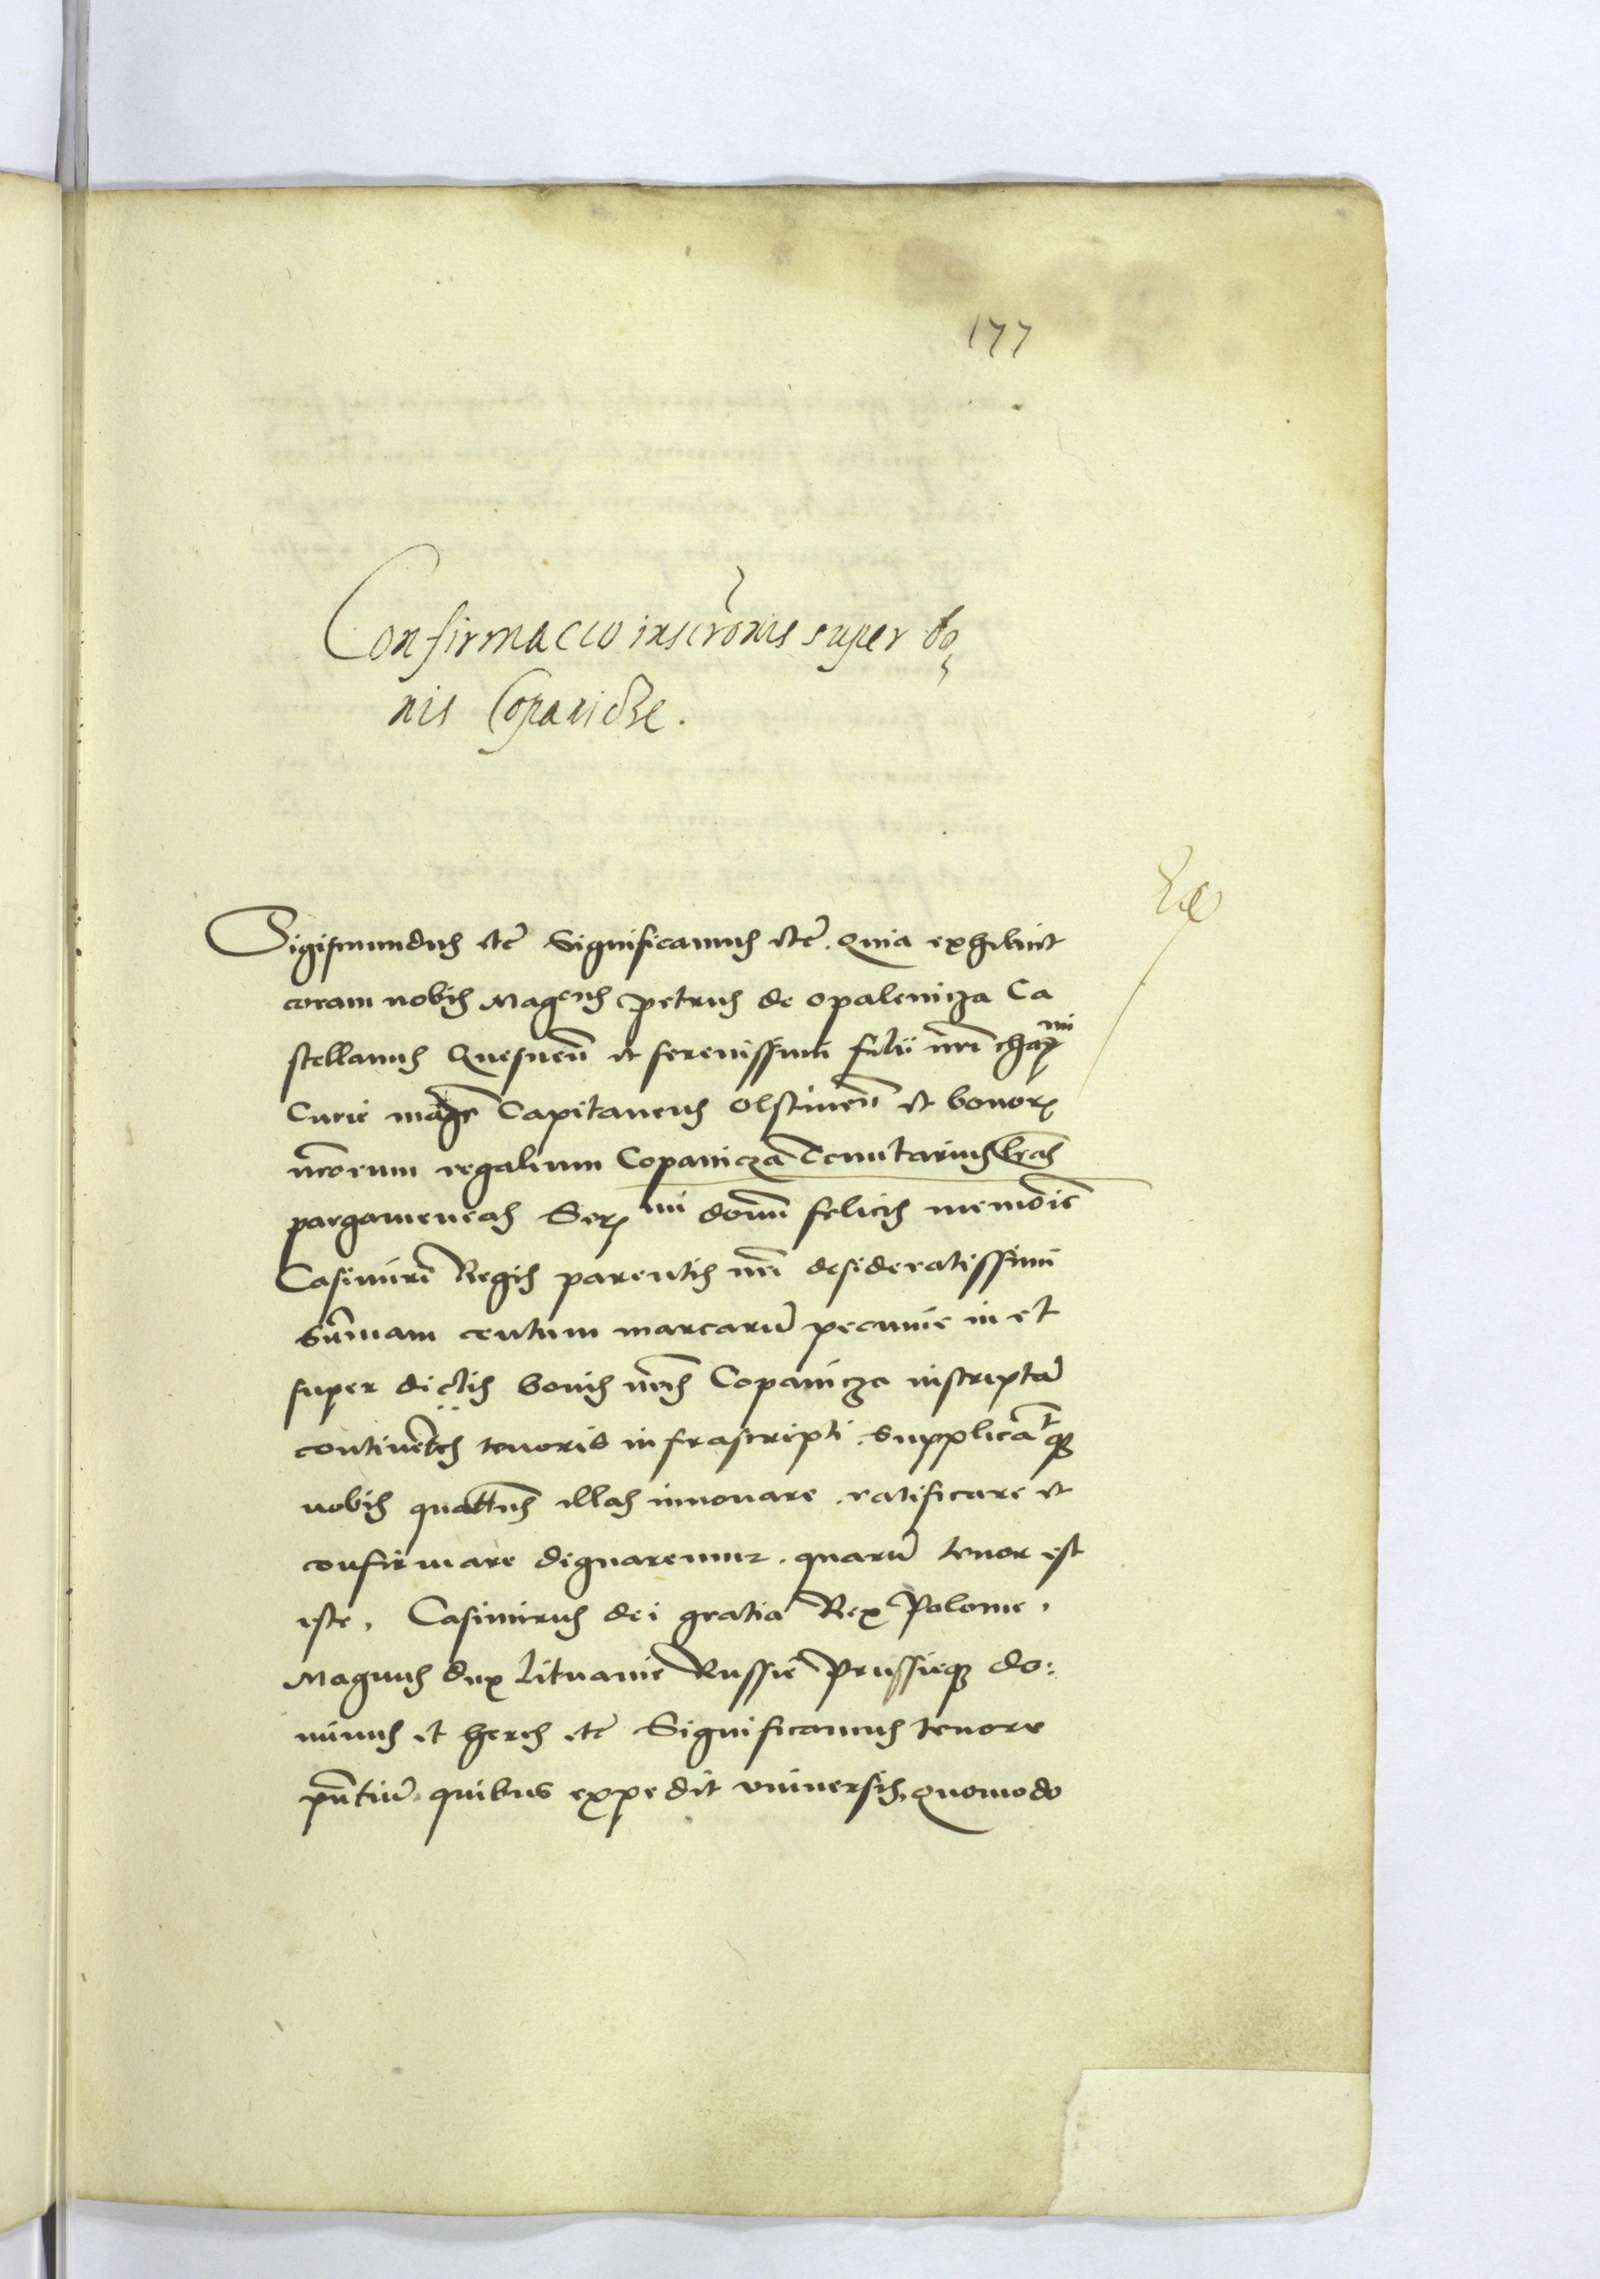 177
Confirmaccio inscrōnis super bo
nis Copanicze.
Sigismundus etc̄ Significamus etc̄. Quia exhibuit
coram nobis Mag̅cus petrus de opalenicza Ca
stellanus Gnesneñ et serenissimi filii nr̄i cha^mi
Curie mag̅r Capitaneus olstineñ et bonor
nr̄orum regalium Copanicza Tenutarius lr̄as
pargameneas Ser^mi domī felicis memorie
Casimiri Regis parentis nr̄i desideratissimi
sum̄am centum marcarū pecunie in et
super dictis bonis nr̄is Copanicza inscriptā
continētes tenoris infrascripti. Supplicā^tq3
nobis quat̄nus illas innovare. ratificare et
confirmare dignaremur. quarū tenor est
iste. Casimirus dei gratia Rex Polonie.
Magnus dux Lituanie Russie Prussieq3 do:
minus et heres etc̄ Significamus tenore
pn̄tiū. quibus expedit universis. Quomodo